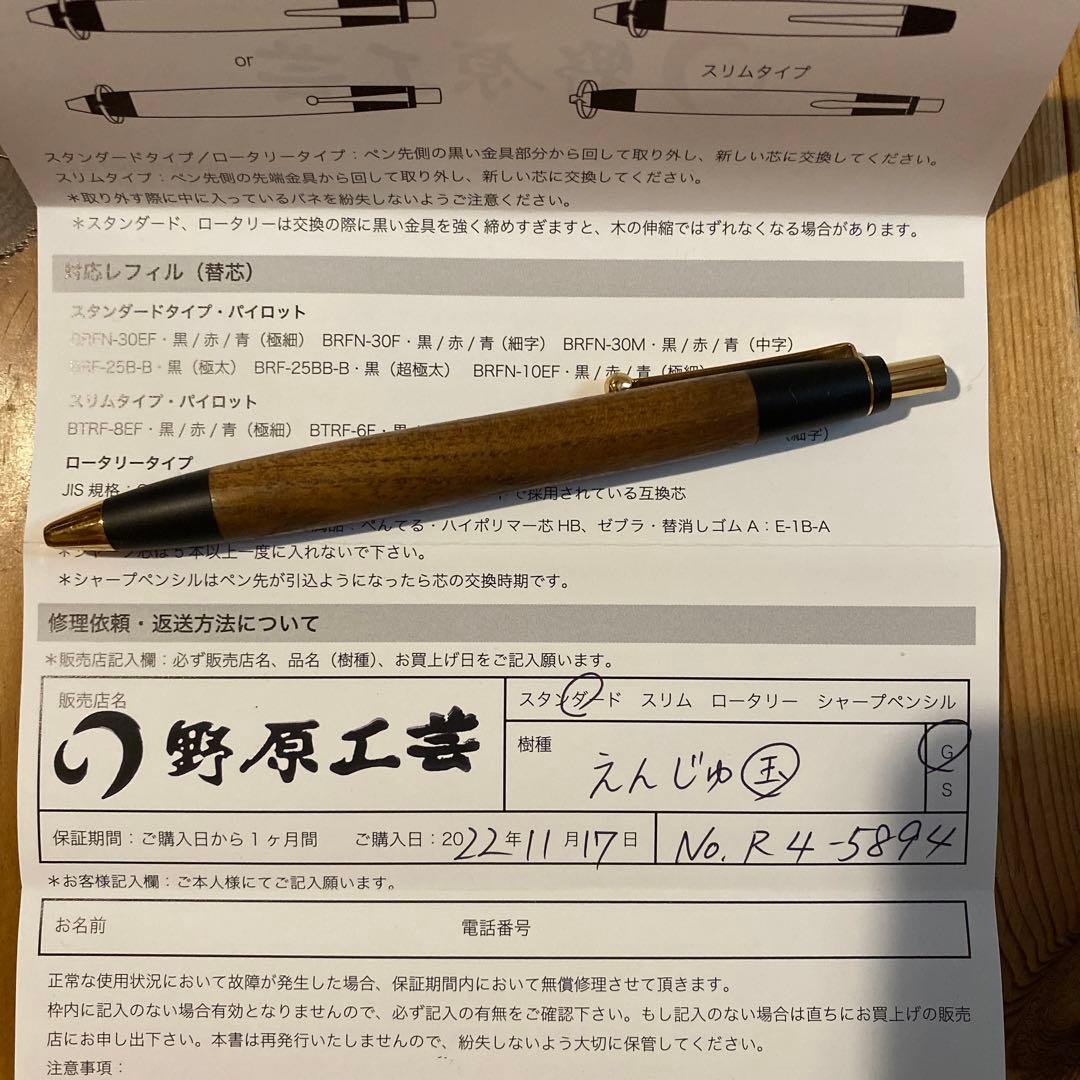 or
スリムタイプ
スタンダードタイプ/ロータリータイプ:ペン先側の黒い金具部分から回して取り外し、新しい芯に交換してください。
スリムタイプ:ペン先側の先端金具から回して取り外し、新しい芯に交換してください。
*取り外す際に中に入っているバネを紛失しないようご注意ください。
*スタンダード、ロータリーは交換の際に黒い金具を強く締めすぎますと、木の伸縮ではずれなくなる場合があります。
対応レフィル(替芯)
スタンダードタイプ・パイロット
BRFN-30EF・黒/赤/青(極細) BRFN-30F・黒/赤/青(細字) BRFN-30M・黒/赤/青(中字)
BRF-25B-B・黒(極太) BRF-25BB-B・黒(超極太) BRFN-10EF・黒/赤/青(極細)
スリムタイプ・パイロット
BTRF-8EF・黒/赤/青(極細) BTRF-6F・黒
ロータリータイプ
JIS規格: で採用されている互換芯
ぺんてる・ハイポリマー芯HB、ゼブラ・替消しゴムA:E-1B-A
*シャープ芯は5本以上一度に入れないで下さい。
*シャープペンシルはペン先が引込ようになったら芯の交換時期です。
修理依頼・返送方法について
*販売店記入欄:必ず販売店名、品名(樹種)、お買上げ日をご記入願います。
販売店名
野原工芸
スタンダード スリム ロータリー シャープペンシル
樹種
えんじゅ 玉
G
S
保証期間:ご購入日から1ヶ月間 ご購入日:2022年11月17日
No. R4-5894
*お客様記入欄:ご本人様にてご記入願います。
お名前 電話番号
正常な使用状況において故障が発生した場合、保証期間内において無償修理させて頂きます。
枠内に記入のない場合有効となりませんので、必ず記入の有無をご確認下さい。もし記入のない場合は直ちにお買上げの販売
店にお申し出下さい。本書は再発行いたしませんので、紛失しないよう大切に保管してください。
注意事項: